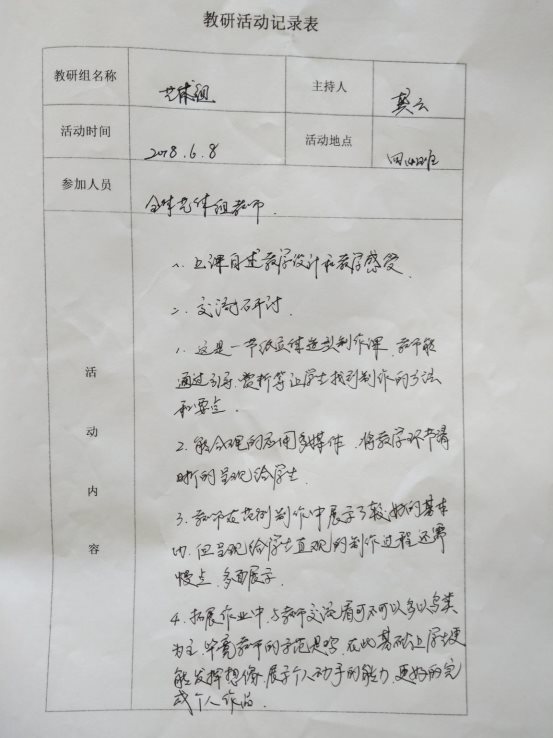 教研活动记录表
教研组名称 艺体组 主持人 龚云
活动时间 2018.6.8 活动地点 四班
参加人员 全体艺体组教师.
活动内容
一、上课自述教学设计和教学感受.
二、交流研讨.
1、这是一节纸立体造型制作课,教师能
通过引导、赏析等让学生找到制作的方法
和要点.
2、能合理的应用多媒体,将教学环节清
晰的呈现给学生.
3、教师在范例制作中展示了较好的基本
功,但呈现给学生直观的制作过程还需
慢点,多面展示.
4、拓展作业中,与教师交流看可不可以多以鸟类
为主,毕竟教师的示范是鸟,在此基础上学生更
能发挥想像,展示个人动手的能力,更好的完
成个人作品.